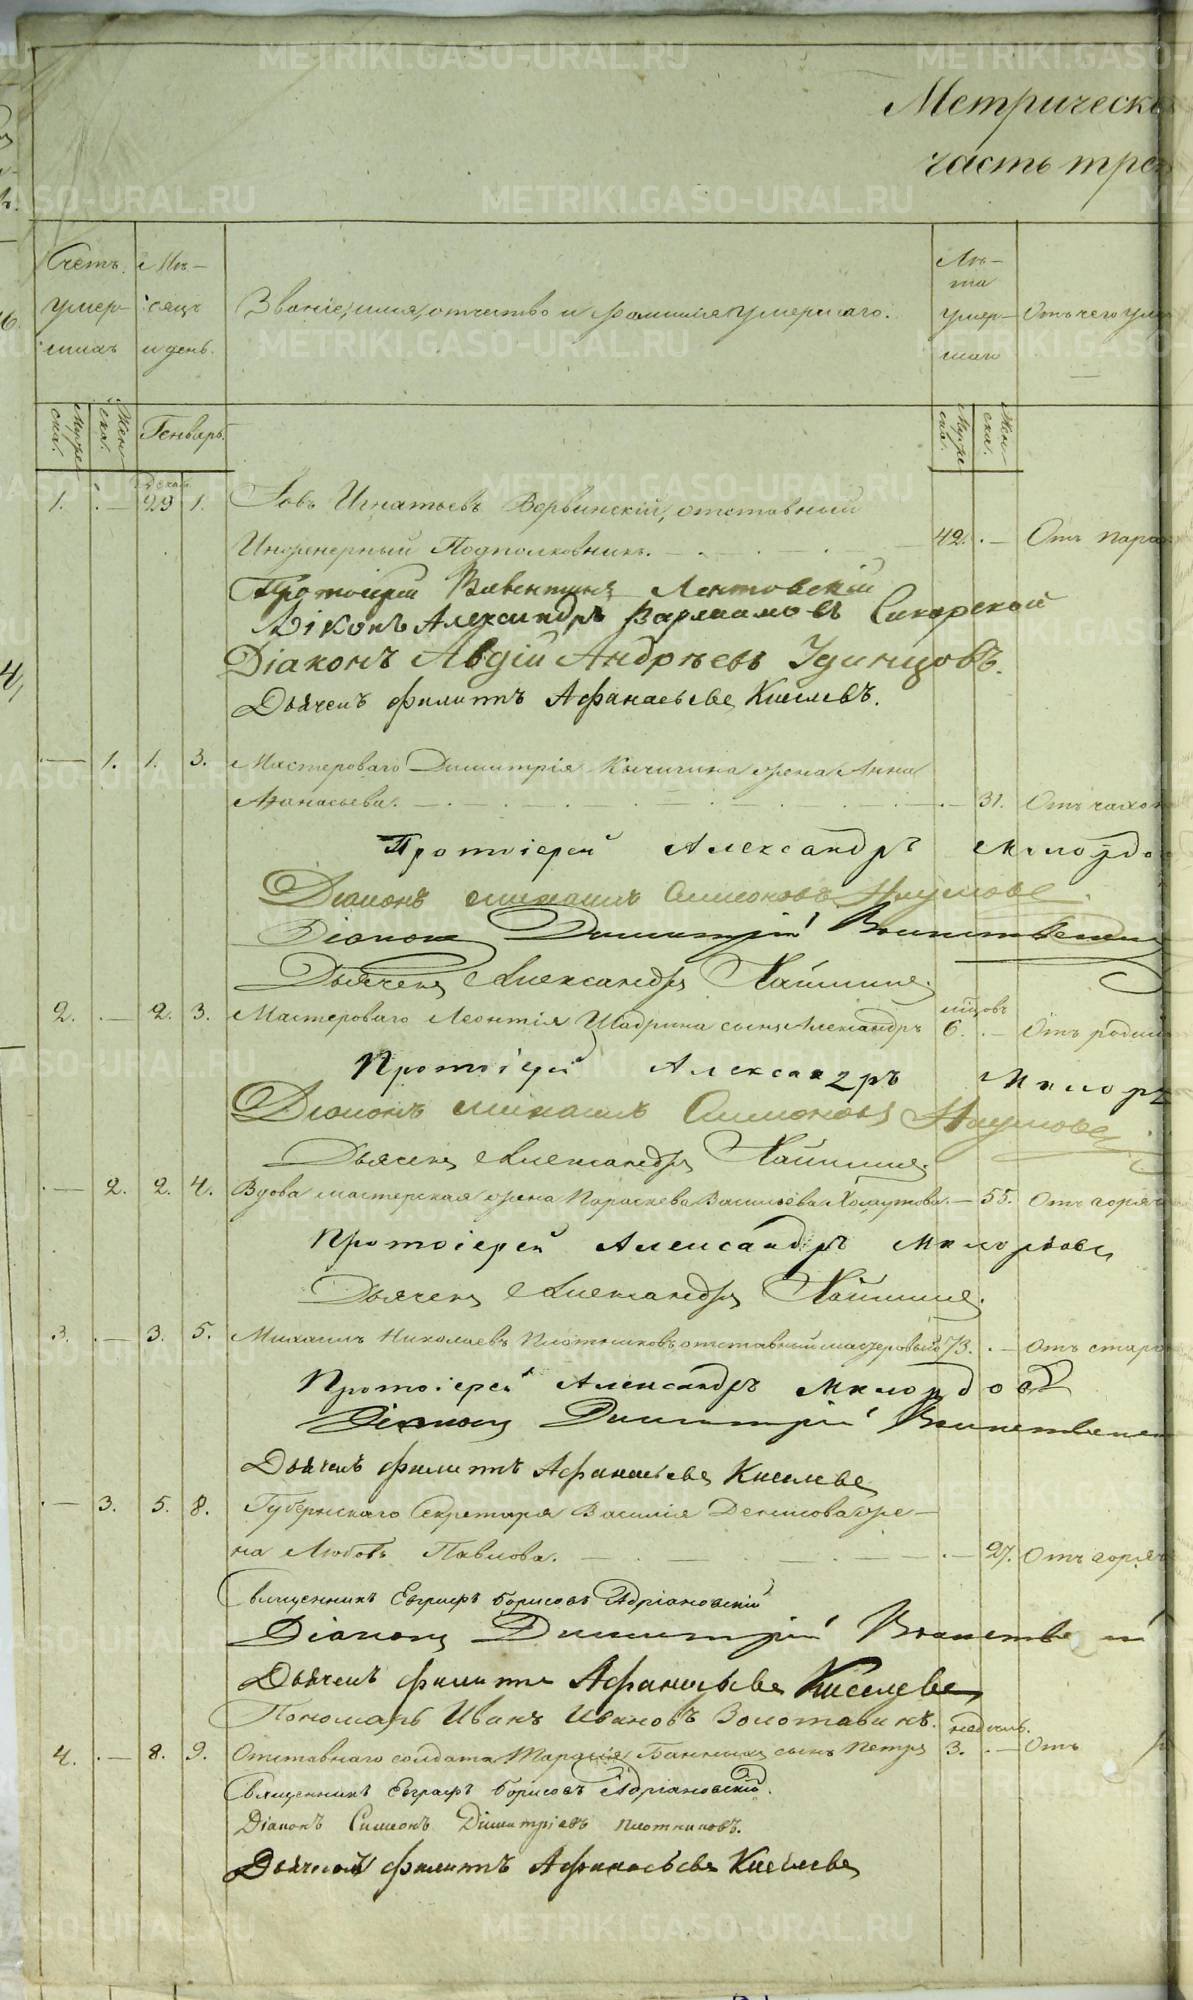 Метрическ
часть трет
Счетъ умер- шихъ
Мѣ- сяцъ и день.
Званіе, имя, отчество и фамилія умершаго.
Лѣ- та умер- шаго
Отъ чего уме
Муже ска.
Жен- ска.
Генварь.
Муже ска.
Жен- ска.
Декаб.
1. — 29 1. Іовъ Игнатьевъ Вервинскій, отставный
Инженерный Подполковникъ. — 42. — Отъ пара
Протоіерей Валентинъ Лентовскій
Діконъ Александръ Варлаамовъ Сикорской
Діаконъ Авдій Андрѣевъ Удинцовъ.
Дьячекъ Филиппъ Афанасьевъ Киселевъ.
— 1. 1. 3. Мастероваго Димитрія Кычигина жена Анна
Афанасьева. — 31. Отъ чахот
Протоіерей Александръ Милордо
Діаконъ Михаилъ Симоновъ Наумовъ.
Діаконъ Димитрій
Дьячекъ Александръ
мѣсцовъ
2. — 2. 3. Мастероваго Леонтія Шадрина сынъ Александръ 6. — Отъ родим
Протоіерей Александръ Милорд
Діаконъ Михаилъ Симоновъ Наумовъ
Дьячекъ Александръ
— 2. 2. 4. Вдова мастерская жена Параскева Васильева Хомутова. — 55. Отъ горяч
Протоіерей Александръ Милордовъ
Дьячекъ Александръ
3. — 3. 5. Михаилъ Николаевъ Плотниковъ, отставный мастеровый 73. — Отъ старо
Протоіерей Александръ Милордовъ
Діаконъ Димитрій
Дьячекъ Филиппъ Афанасьевъ Киселевъ
— 3. 5. 8. Губернскаго Секретаря Василія Денисова же-
на Любовь Павлова. — 27. Отъ горяч
Священникъ Евграфъ Борисовъ Адріановскій
Діаконъ Димитрій
Дьячекъ Филиппъ Афанасьевъ Киселевъ
Пономарь Иванъ Ивановъ Золотавинъ.
недѣль.
4. — 8. 9. Отставнаго солдата Тарасія Банныхъ сынъ Петръ 3. — Отъ
Священникъ Евграфъ Борисовъ Адріановскій.
Діаконъ Симеонъ Димитріевъ Плотниковъ.
Дьячекъ Филиппъ Афанасьевъ Киселевъ
METRIKI.GASO-URAL.RU